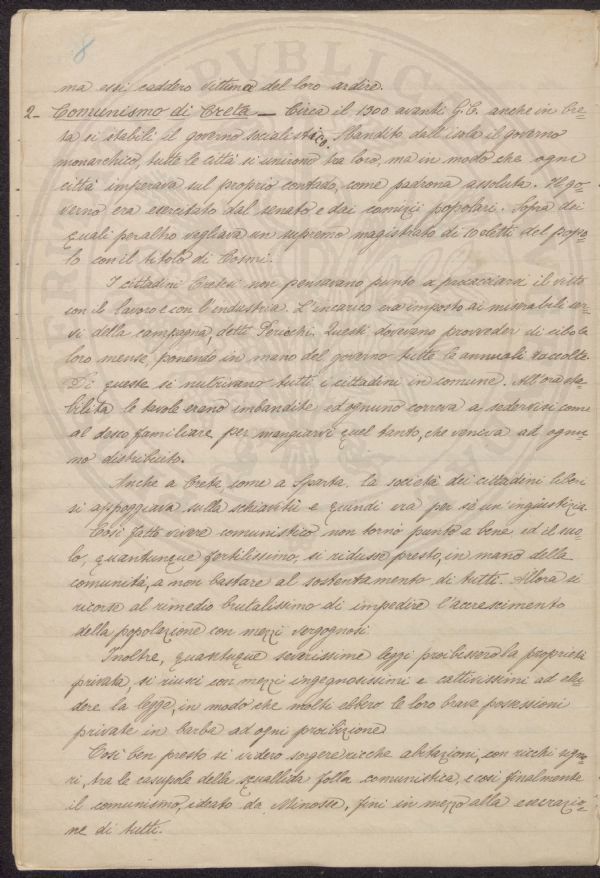 8
ma essi caddero vittima del loro ardire.
2- Comunismo di Creta — Circa il 1300 avanti G.C. anche in Cre-
ta si stabilì il governo socialistico. Bandito dall'isola il governo
monarchico, tutte le città si unirono tra loro, ma in modo che ogni
città imperava sul proprio contado, come padrona assoluta. Il go-
verno era esercitato dal senato e dai comizii popolari. Sopra dei
quali peraltro vegliava un supremo magistrato di 10 eletti del popo-
lo con il titolo di Cosmi.
I cittadini Cretesi non pensavano punto a procacciarsi il vitto
con il lavoro e con l'industria. L'incarico era imposto ai miserabili ser-
vi della campagna, detti Periochi. Questi dovevano provveder di cibo le
loro mense, ponendo in mano del governo tutte le annuali raccolte.
Di queste si nutrivano tutti i cittadini in comune. All'ora sta-
bilita le tavole erano imbandite ed ognuno correva a sedervisi come
al desco famigliare per mangiarvi quel tanto, che veniva ad ognu-
no distribuito.
Anche a Creta come a Sparta, la società dei cittadini liberi
si appoggiava sulla schiavitù e quindi era per sè un'ingiustizia.
Così fatto vivere comunistico non tornò punto a bene ed il suo-
lo, quantunque fertilissimo, si ridusse presto, in mano della
comunità, a non bastare al sostentamento di tutti. Allora si
ricorse al rimedio brutalissimo di impedire l'accrescimento
della popolazione con mezzi vergognosi.
Inoltre, quantuque severissime leggi proibissero la proprietà
privata, si riuscì con mezzi ingegnosissimi e cattivissimi ad elu-
dere la legge, in modo che molti ebbero le loro brave possessioni
private in barba ad ogni proibizione
Così ben presto si videro sorgere ricche abitazioni, con ricchi signo-
ri, tra le casupole della squallida folla comunistica, e così finalmente
il comunismo, ideato da Minosse, finì in mezzo alla esecrazio-
ne di tutti.
PVBLIC